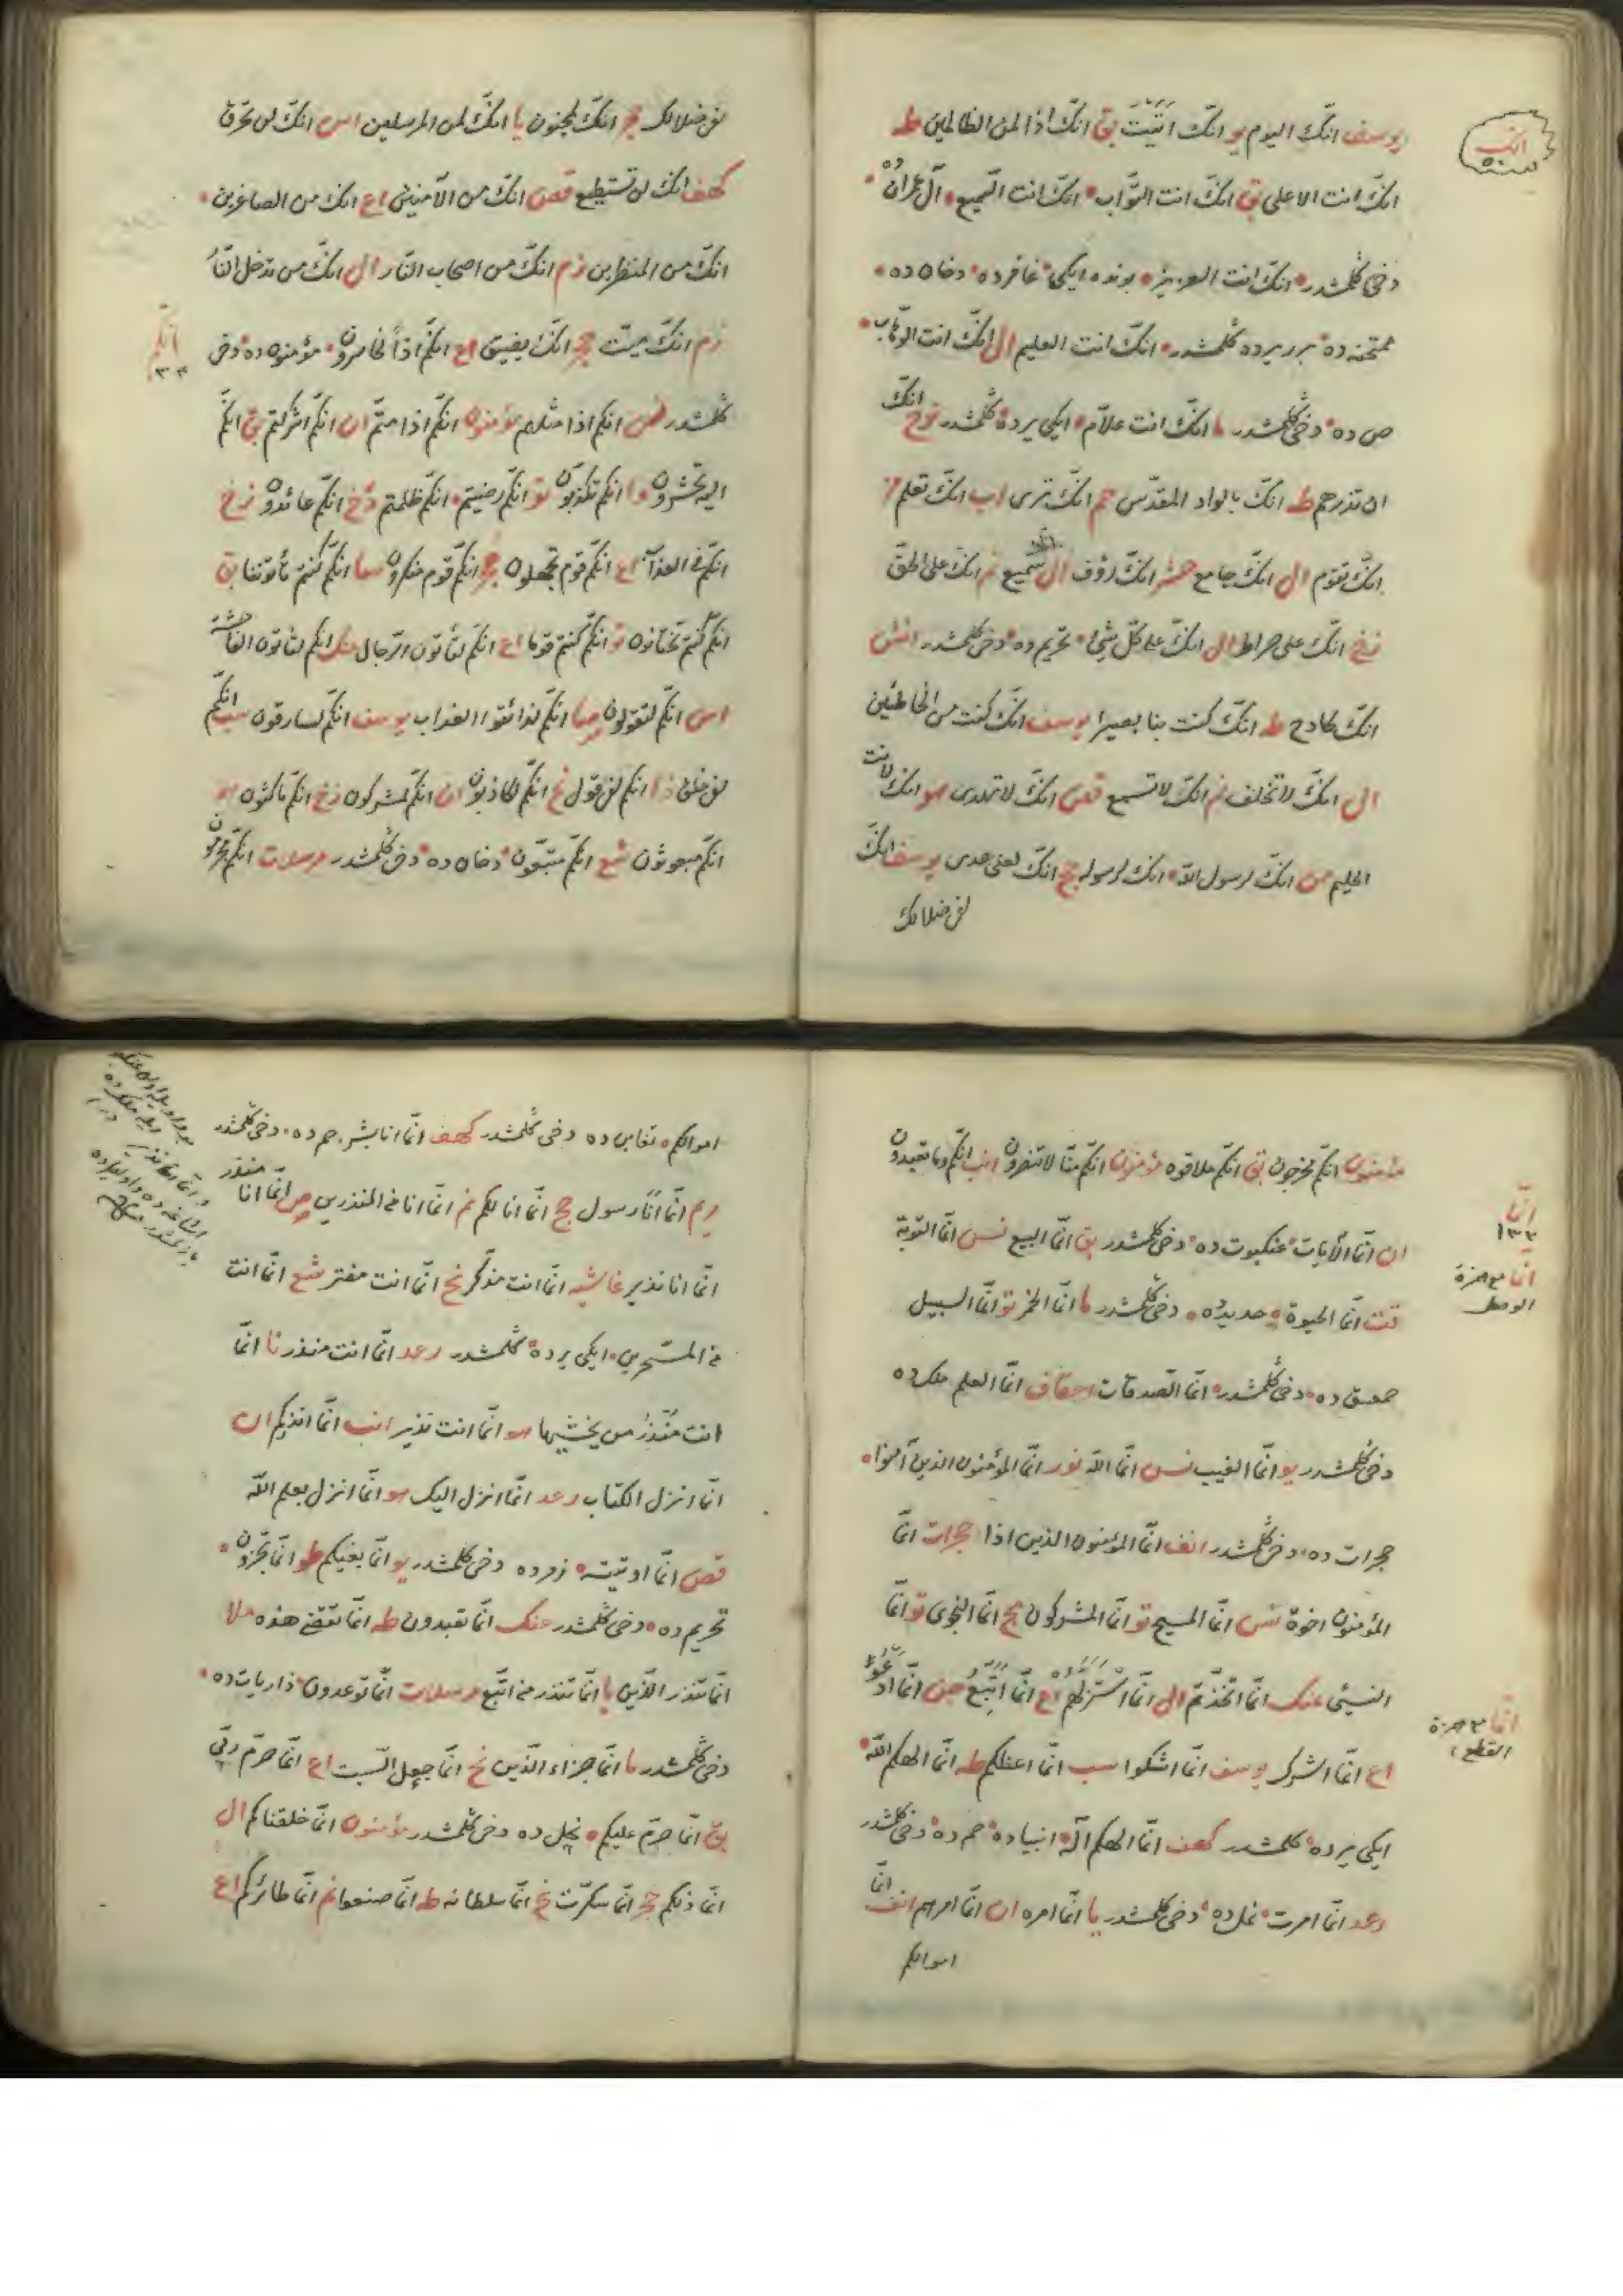 انك
يوسف انك اليوم يو انك اتيت بق انك اذا لمن الظالمين طه
انك انت الاعلى بق انك انت التواب انك انت السميع آل عمران ده
دخى كلمشدر انك انت العزيز بونده ايكى غافرده دخان ده
ممتحنه ده برر يرده كلمشدر انك انت العليم ال انك انت الوهاب
ص ده دخى كلمشدر ما انك انت علام ايكى يرده كلمشدر نوح انك
ان تذرهم طه انك بالواد المقدس حم انك ترى اب انك تعلم
انك تقوم ال انك جامع حشر انك رؤف ال سميع نم انك على الحق
زخ انك على صراط ال انك على كل شئ تحريم ده دخى كلمشدر انش
انك كادح طه انك كنت بنا بصيرا يوسف انك كنت من الخاطئين
ال انك لا تخلف نم انك لا تسمع قص انك لا تهدى هو انك لانت
الحليم من انك لرسول الله انك لرسوله حج انك لعلى هدى يوسف انك
لفى ضلالك
لفى ضلالك حجر انك لمجنون يا انك لمن المرسلين اس انك لن تخرق
كهف انك لن تستطيع قصص انك من الآمنين اع انك من الصاغرين
انك من المنظرين زم انك من اصحاب النار ال انك من تدخل النار
انكم
٣٣
زم انك ميت حجر انك يضيق اع انكم اذا لخاسرون مؤمنون ده دخى
كلمشدر نس انكم اذا مثلهم مؤمنون انكم اذا متم ان انكم اشركتم بق انكم
اليه تحشرون وا انكم تكذبون تو انكم رضيتم انكم ظلمتم دخ انكم عائدون زخ
انكم فى العذاب اع انكم قوم تجهلون حجر انكم قوم منكرون صا انكم كنتم تأتوننا بق
انكم كنتم تختانون تو انكم كنتم قوما اع انكم لتأتون الرجال عنك انكم لتأتون الفاحشة
اس انكم لتقولون صا انكم لذائقوا العذاب يوسف انكم لسارقون سب انكم
لفى خلق ذا انكم لفى قول نح انكم لكاذبون ان انكم لمشركون زخ انكم ماكثون هو
انكم مبعوثون شع انكم متبعون دخان ده دخى كلمشدر مرسلات انكم مجرمون
مؤمنون انكم مخرجون بق انكم ملاقوه مؤمنون انكم منا لا تنصرون انب انكم وما تعبدون
انما
١٣٣
انما مع همزة
الوصل
ان انما الآيات عنكبوت ده دخى كلمشدر بق انما البيع نس انما التوبة
قت انما الحيوة حديدده دخى كلمشدر ما انما الخمر تو انما السبيل
حمعسق ده دخى كلمشدر انما الصدقات احقاف انما العلم ملك ده
دخى كلمشدر يو انما الغيب نس انما الله نور انما المؤمنون الذين آمنوا
حجرات ده دخى كلمشدر انف انما المؤمنون الذين اذا حجرات انما
المؤمنون اخوة نس انما المسيح تو انما المشركون مج انما النجوى تو انما
النسئ عنك انما اتخذتم ال انما استزلهم اع انما اتبع جن انما ادعوا
انما مع همزة
القطع
اع انما اشرك يوسف انما اشكوا سب انما اعظكم طه انما الهكم الله
ايكى يرده كلمشدر كهف انما الهكم اله انبياده حم ده دخى كلمشدر
رعد انما امرت نمل ده دخى كلمشدر يا انما امره ان انما امرهم انف انما
اموالكم
اموالكم تغابن ده دخى كلمشدر كهف انما انا بشر حم ده دخى كلمشدر
مريم انما انا رسول حج انما انا لكم نم انما انا من المنذرين ص انما انا منذر
انما انا نذير غاشيه انما انت مذكر نح انما انت مفتر شع انما انت
من المسحرين ايكى يرده كلمشدر رعد انما انت منذر نا انما
انت منذر من يخشيها هو انما انت نذير انب انما انذركم ان
انما انزل الكتاب رعد انما انزل اليك هو انما انزل بعلم الله
قصص انما اوتيته زمر ده دخى كلمشدر يو انما بغيكم طو انما تجزون
تحريم ده دخى كلمشدر عنك انما تعبدون طه انما تقضى هذه ملا
انما تنذر الذين يا انما تنذر من اتبع مرسلات انما توعدون ذاريات ده
دخى كلمشدر ما انما جزاء الذين نح انما جعل السبت اع انما حرم ربى
بق انما حرم عليكم نحل ده دخى كلمشدر مؤمنون انما خلقناكم ال
انما ذلكم حجر انما سكرت نح انما سلطانه طه انما صنعوا نم انما طائركم اع